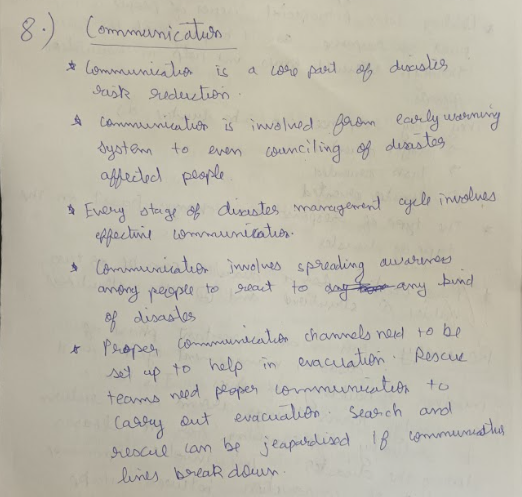 8.) Communication
* Communication is a core part of disaster
risk reduction.
* Communication is involved from early warning
system to even counciling of disaster
affected people
* Every stage of disaster management cycle involves
effective communication.
* Communication involves spreading awareness
among people to react to any kind
of disaster
* Proper communication channels need to be
set up to help in evacuation. Rescue
teams need proper communication to
carry out evacuation. Search and
rescue can be jeapardised if communication
lines break down.